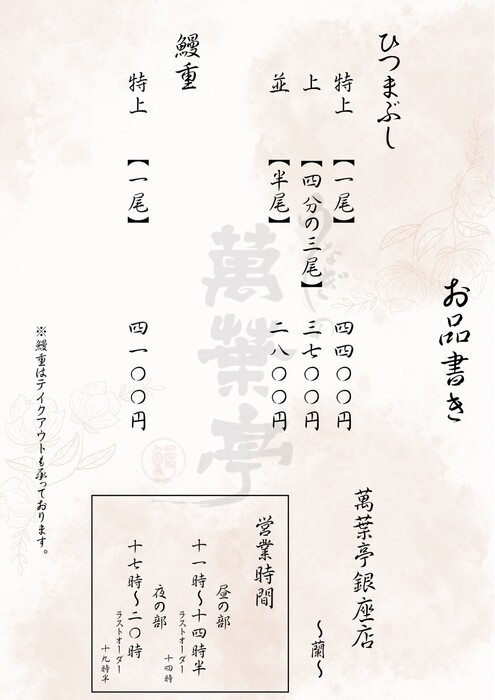 お品書き
ひつまぶし
特上 【一尾】 四四〇〇円
上 【四分の三尾】 三七〇〇円
並 【半尾】 二八〇〇円
鰻重
特上 【一尾】 四一〇〇円
※鰻重はテイクアウトも承っております。
うなぎの
萬葉亭
萬葉亭銀座店
〜蘭〜
営業時間
昼の部
十一時〜十四時半
ラストオーダー
十四時
夜の部
十七時〜二〇時
ラストオーダー
十九時半